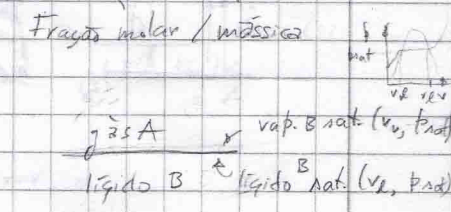 Fração molar / mássica
sat
vl vv
gás A
vap. B sat. (vv, psat)
líqido B
líqido B sat. (vl, psat)